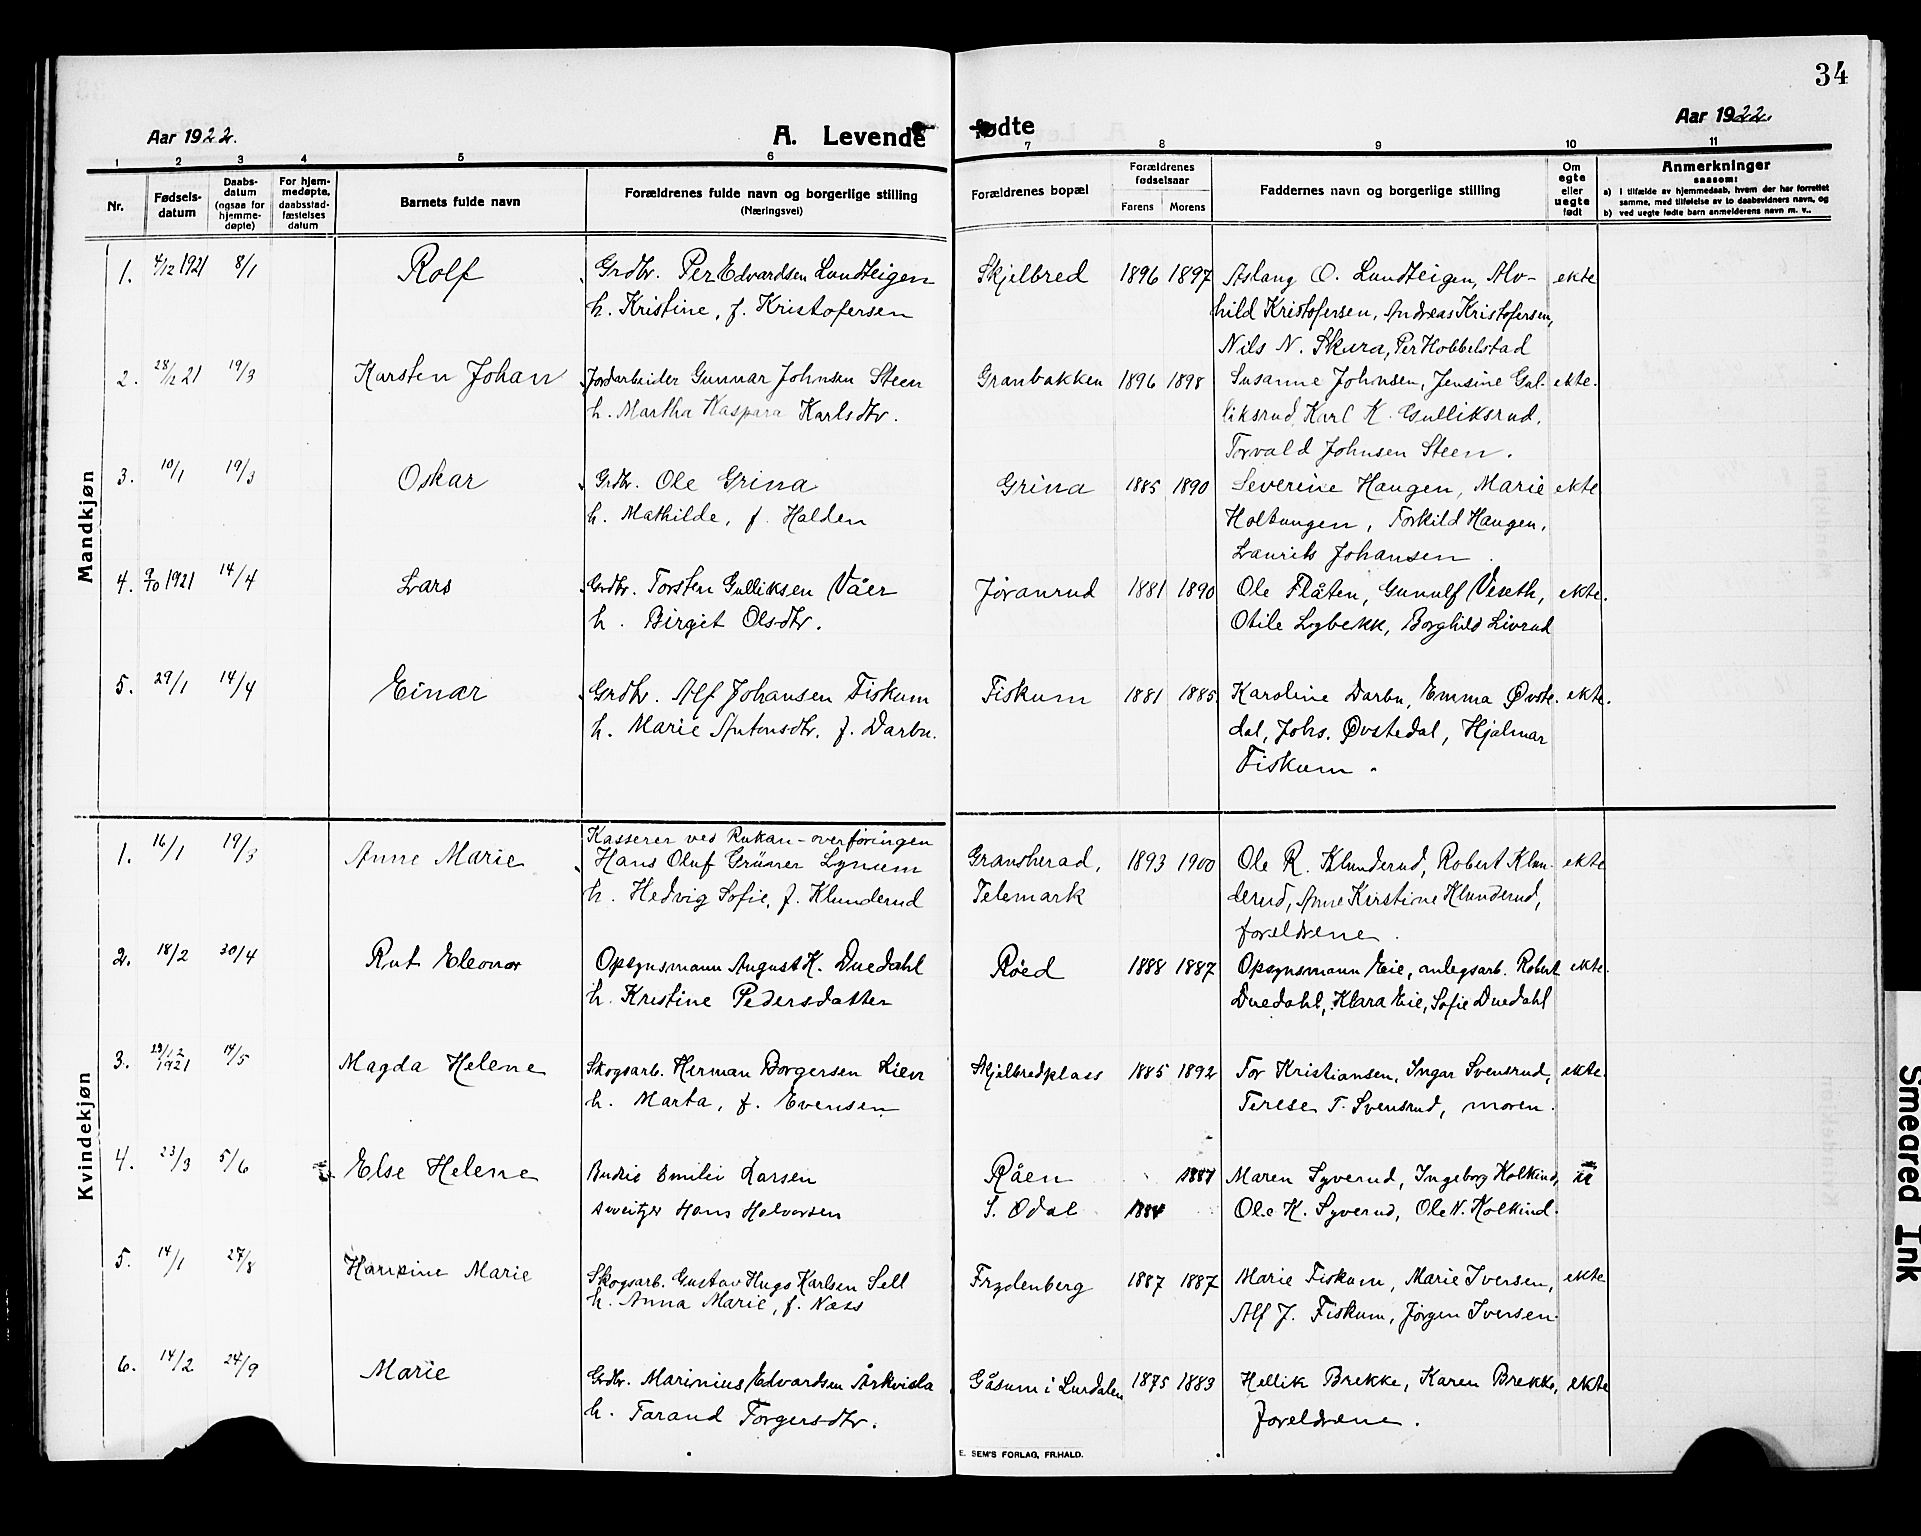 34
Aar 1922.
A. Levende fødte
Aar 1922.
1 2 3 4 5 6 7 8 9 10 11
Nr.
Fødsels-
datum
Daabs-
datum
(ogsaa for
hjemme-
døpte)
For hjem-
medøpte,
daabsstad-
fæstelses
datum
Barnets fulde navn
Forældrenes fulde navn og borgerlige stilling
(Næringsvei)
Forældrenes bopæl
Forældrenes
fødselsaar
Farens Morens
Faddernes navn og borgerlige stilling
Om
egte
eller
uegte
født
Anmerkninger
saasom:
a) i tilfælde av hjemmedaab, hvem der har forrettet
samme, med tilføielse av to daabsvidners navn, og
b) ved uegte fødte barn anmelderens navn m. v..
Mandkjøn
1. 4/12 1921 8/1 Rolf Grdbr. Per Edvardsen Lundteigen Skjelbred 1896 1897 Aslaug O. Lundteigen, Alv- ekte
h. Kristine, f. Kristofersen hild Kristofersen, Andreas Kristofersen,
Nils N. Skura, Per Hobbelstad
2. 28/12 21 19/3 Karsten Johan Jordarbeider Gunnar Johnsen Steen Granbakken 1896 1898 Susanne Johnsen, Jensine Gul- ekte.
h. Martha Kaspara Karlsdtr. liksrud, Karl K. Gulliksrud,
Torvald Johnsen Steen.
3. 10/1 19/3 Oskar Grdbr. Ole Grina Grina 1885 1890 Severine Haugen, Marie ekte
h. Mathilde, f. Halden Holtungen, Torkild Haugen,
Laurits Johansen.
4. 9/10 1921 14/4 Lars Grdbr. Torsten Gulliksen Våer Jøranrud 1881 1890 Ole Flåten, Gunulf Veseth, ekte.
h. Birgit Olsdtr. Otile Lybekk, Borghild Livrud
5. 29/1 14/4 Einar Grdbr. Alf Johansen Fiskum Fiskum 1881 1885 Karoline Darbu, Emma Øvste- ekte.
h. Marie Antonsdtr. f. Darbu. dal, Johs. Øvstedal, Hjalmar
Fiskum.
Kvindekjøn
Kasserer ved Rukan-overføringen
1. 16/1 19/3 Anne Marie Hans Oluf Grüner Lynum Gransherad, 1893 1900 Ole R. Klunderud, Robert Klun- ekte
h. Hedvig Sofie, f. Klunderud Telemark derud, Anne Kirstine Klunderud,
foreldrene.
2. 18/2 30/4 Rut Eleonor Opsynsmann August K. Duedahl Røed 1888 1887 Opsynsmann Eie, anlegsarb. Robert ekte.
h. Kristine Pedersdatter Duedahl, Klara Eie, Sofie Duedahl
3. 29/12 1921 14/5 Magda Helene Skogsarb. Herman Borgersen Lien Skjelbredplass 1885 1892 Tor Kristiansen, Ingar Svensrud, ekte.
h. Marta, f. Evensen Terese T. Svensrud, moren.
4. 23/3 5/6 Else Helene Budeie Emilie Larsen Råen 1887 Maren Syverud, Ingeborg Kolkind, u
sveitzer Hans Halvorsen S. Odal 1884 Ole K. Syverud, Ole N. Kolkind.
5. 14/1 27/8 Marie Skogsarb. Gustav Hugo Karlsen Sell Frydenberg 1887 1887 Marie Fiskum, Marie Iversen, ekte
h. Anna Marie, f. Næss Alf J. Fiskum, Jørgen Iversen.
6. 14/2 24/9 Marie Grdbr. Marinius Edvardsen Åsum i Lurdalen 1875 1883 Hellik Brekke, Karen Brekke, ekte
h. Tarand Torgersdtr. foreldrene.
E. SEM'S FORLAG, FR.HALD.
Smeared Ink